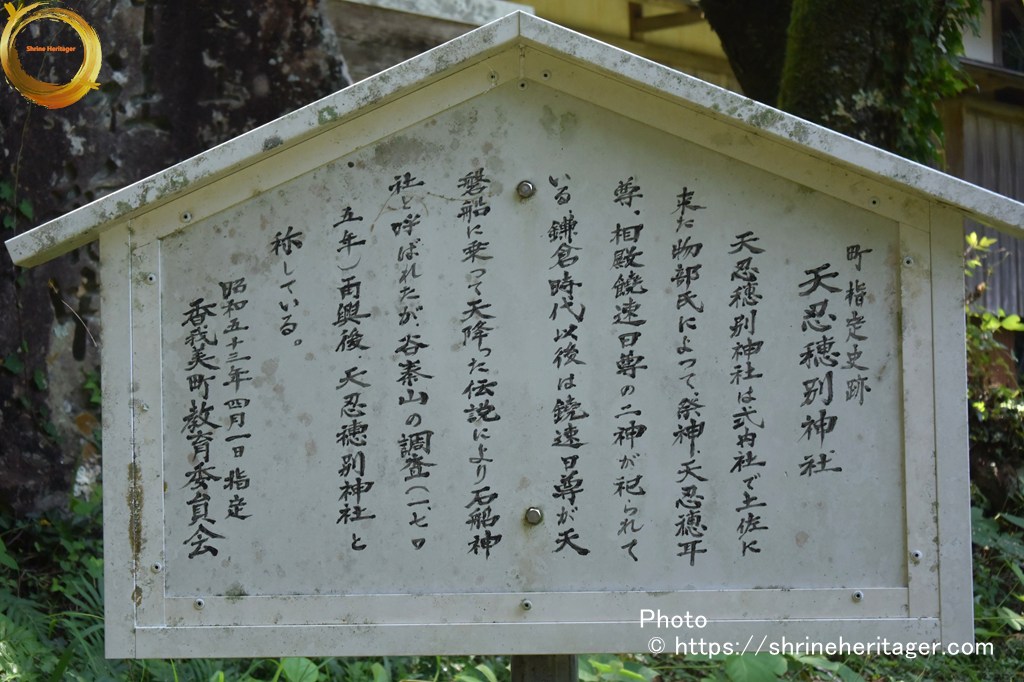 町指定史跡
天忍穂別神社
天忍穂別神社は式内社で土佐に
来た物部氏によって、祭神、天忍穂耳
尊、相殿饒速日尊の二神が祀られて
いる鎌倉時代以後は饒速日尊が天
磐船に乗って天降った伝説により石船神
社と呼ばれたが、谷秦山の調査(一、七〇
五年)再興後、天忍穂別神社と
称している。
昭和五十三年四月一日指定
香我美町教育委員会
Shrine Heritager
Photo
© https://shrineheritager.com/